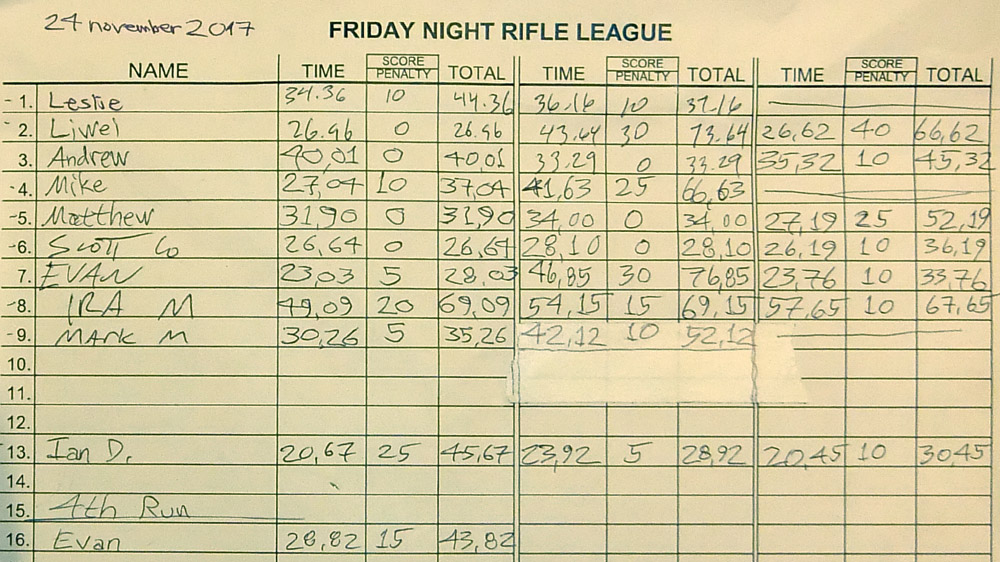 24 november 2017
FRIDAY NIGHT RIFLE LEAGUE
NAME TIME SCORE PENALTY TOTAL TIME SCORE PENALTY TOTAL TIME SCORE PENALTY TOTAL
-1. Leslie 34.36 10 44.36 36.16 10 37.16
-2. Liwei 26.96 0 26.96 43.64 30 73.64 26,62 40 66,62
3. Andrew 40,01 0 40,01 33.29 0 33.29 35,32 10 45,32
-4. Mike 27,04 10 37,04 41,63 25 66,63
-5. Matthew 31,90 0 31,90 34,00 0 34,00 27,19 25 52,19
-6. Scott Co 26,64 0 26,64 28,10 0 28,10 26,19 10 36,19
7. EVAN 23,03 5 28,03 46,85 30 76,85 23,76 10 33,76
-8. IRA M 49,09 20 69,09 54,15 15 69,15 57,65 10 67,65
-9. MARK M 30,26 5 35,26 42,12 10 52,12
10.
11.
12.
13. Ian D. 20,67 25 45,67 23,92 5 28,92 20,45 10 30,45
14.
15. 4th Run
16. Evan 28,82 15 43,82